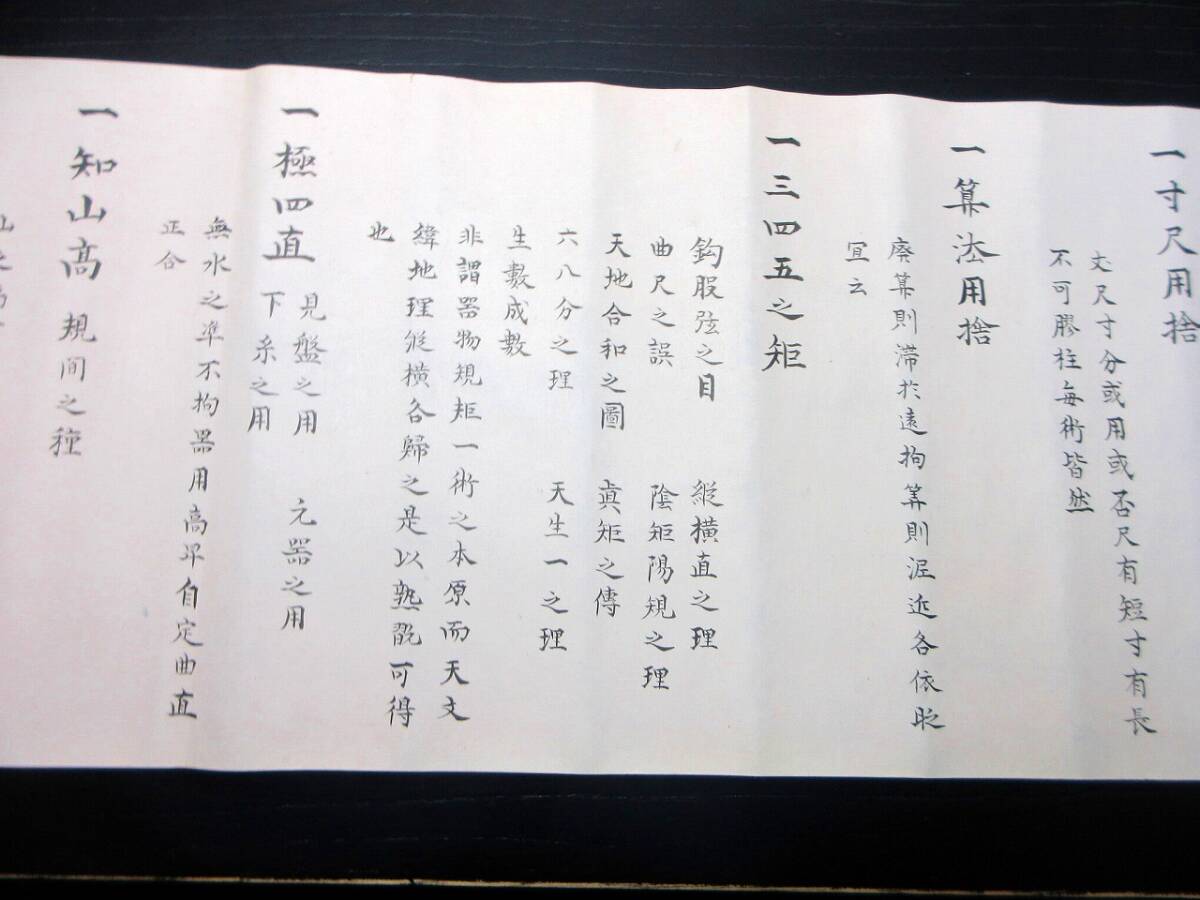 一寸尺用捨
丈尺寸分或用或否尺有短寸有長
不可膠柱每術皆然
一算法用捨
廃算則滞於遠拘算則泥近各依
宜云
一三四五之矩
鈎股弦之目 縦横直之理
曲尺之誤 陰矩陽規之理
天地合和之圖 真矩之傳
六八分之理 天生一之理
生數成數
非謂器物規矩一術之本原而天文
緯地理縦横各歸之是以熟翫可得
也
一極四直 見盤之用 元器之用
下糸之用
無水之準不拘器用高平自定曲直
正合
一知山高 規間之種